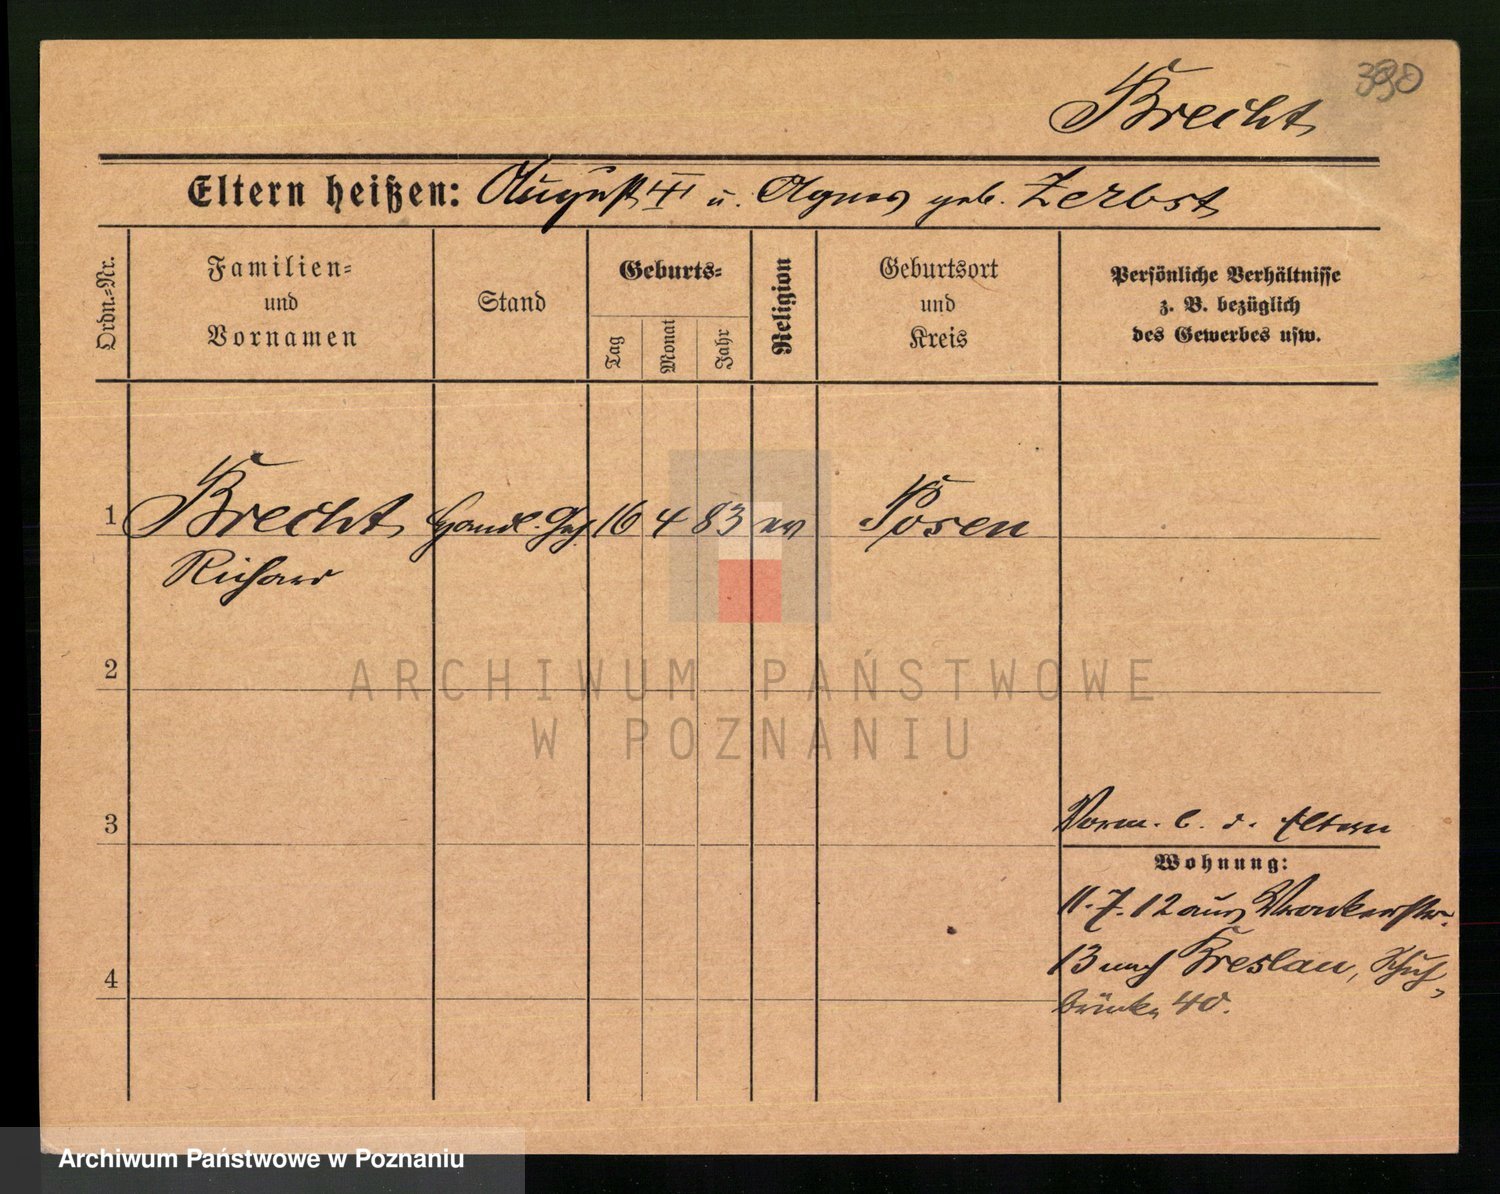 390
Brecht
Eltern heißen: August III u. Agnes geb. Zerbst
Ordn.-Nr.
Familien-
und
Vornamen
Stand
Geburts-
Tag
Monat
Jahr
Religion
Geburtsort
und
Kreis
Persönliche Verhältnisse
z. B. bezüglich
des Gewerbes usw.
1 Brecht Handl. Geh. 16 4 83 ev Posen
Richard
2
ARCHIWUM PAŃSTWOWE
W POZNANIU
3
Vorm. b. d. Eltern
Wohnung:
11.7.12 aus Wronkerstr.
13 nach Breslau, Schuh-
4
brücke 40.
Archiwum Państwowe w Poznaniu